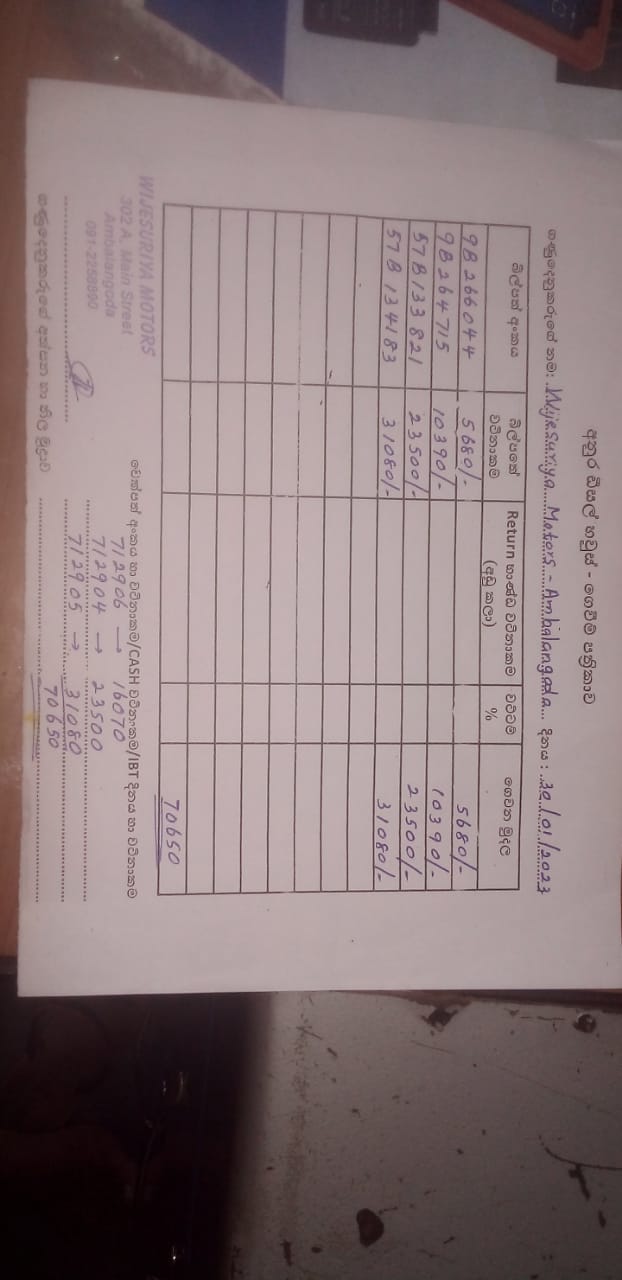 අනුර ඩීසල් හවුස් - ගෙවීම් පත්‍රිකාව
ගණුදෙනුකරුගේ නම: Wijesuriya Motors - Ambalangoda දිනය : 30/01/2023
බිල්පත් අංකය බිල්පතේ වටිනාකම Return භාණ්ඩ වටිනාකම (අඩු කලා) වට්ටම් % ගෙවන මුදල
9B 266044 5680/- 5680/-
9B 264715 10390/- 10390/-
57B 133821 23500/- 23500/-
57B 134183 31080/- 31080/-
70650
චෙක්පත් අංකය හා වටිනාකම/CASH වටිනාකම/IBT දිනය හා වටිනාකම
712906 → 16070
712904 → 23500
712905 → 31080
70650
WIJESURIYA MOTORS
302 A, Main Street
Ambalangoda
091-2258890
ගණුදෙනුකරුගේ අත්සන හා නිල මුද්‍රාව